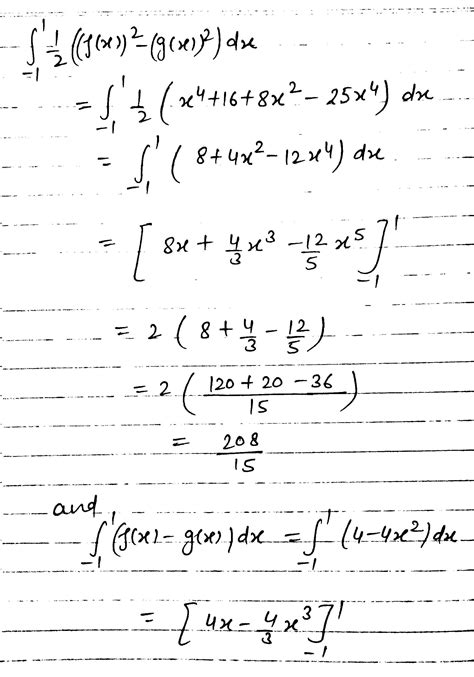 ∫₋₁¹ 1/2 ((f(x))² - (g(x))²) dx
= ∫₋₁¹ 1/2 (x⁴+16+8x² - 25x⁴) dx
= ∫₋₁¹ (8+4x² - 12x⁴) dx
= [8x + 4/3 x³ - 12/5 x⁵]₋₁¹
= 2 (8 + 4/3 - 12/5)
= 2 ((120 + 20 - 36)/15)
= 208/15
and
∫₋₁¹ (f(x) - g(x)) dx = ∫₋₁¹ (4-4x²) dx
= [4x - 4/3 x³]₋₁¹